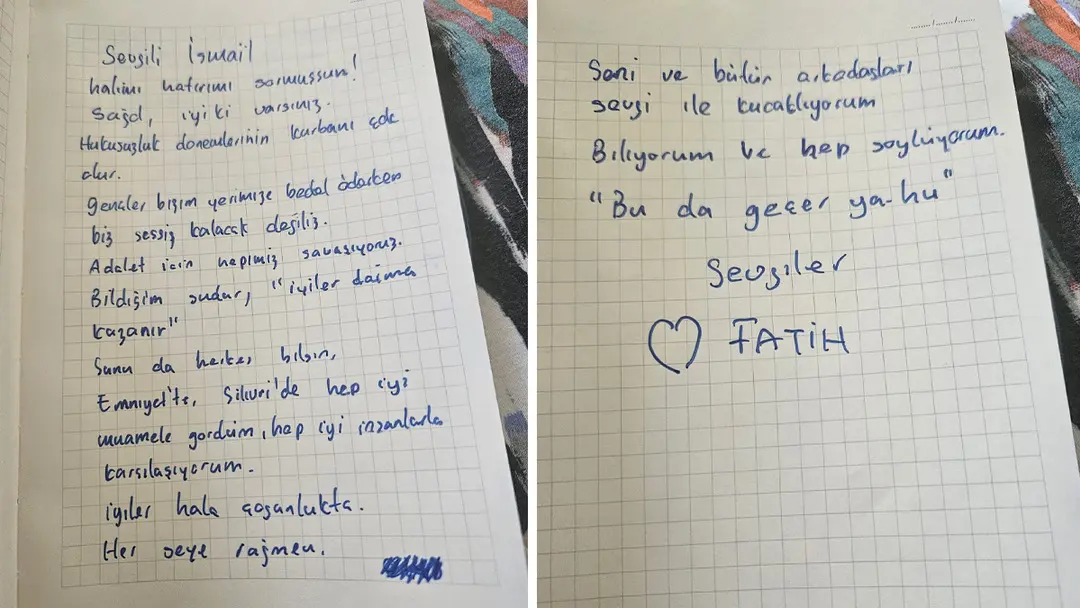 Sevgili İsmail
halimi hatırımı sormuşsun!
Sağol, iyi ki varsınız.
Hukusuzluk donemlerinin kurbanı çok
olur.
gençler bizim yerimize bedel ödarken
biz sessiz kalacak değiliz.
Adalet icin hepimiz savasıyoruz.
Bildiğim sudur, "iyiler daima
kazanır"
Sunu da herkes bilsin,
Emniyet'te, Silivri'de hep iyi
muamele gordüm, hep iyi insanlarla
karsılaşıyorum.
iyiler hala çoğunlukta.
Her seye rağmen.
Seni ve bütün arkadaşları
sevgi ile kucaklıyorum
Biliyorum ve hep soylüyorum.
"Bu da geçer ya-hu"
Sevgiler
FATİH